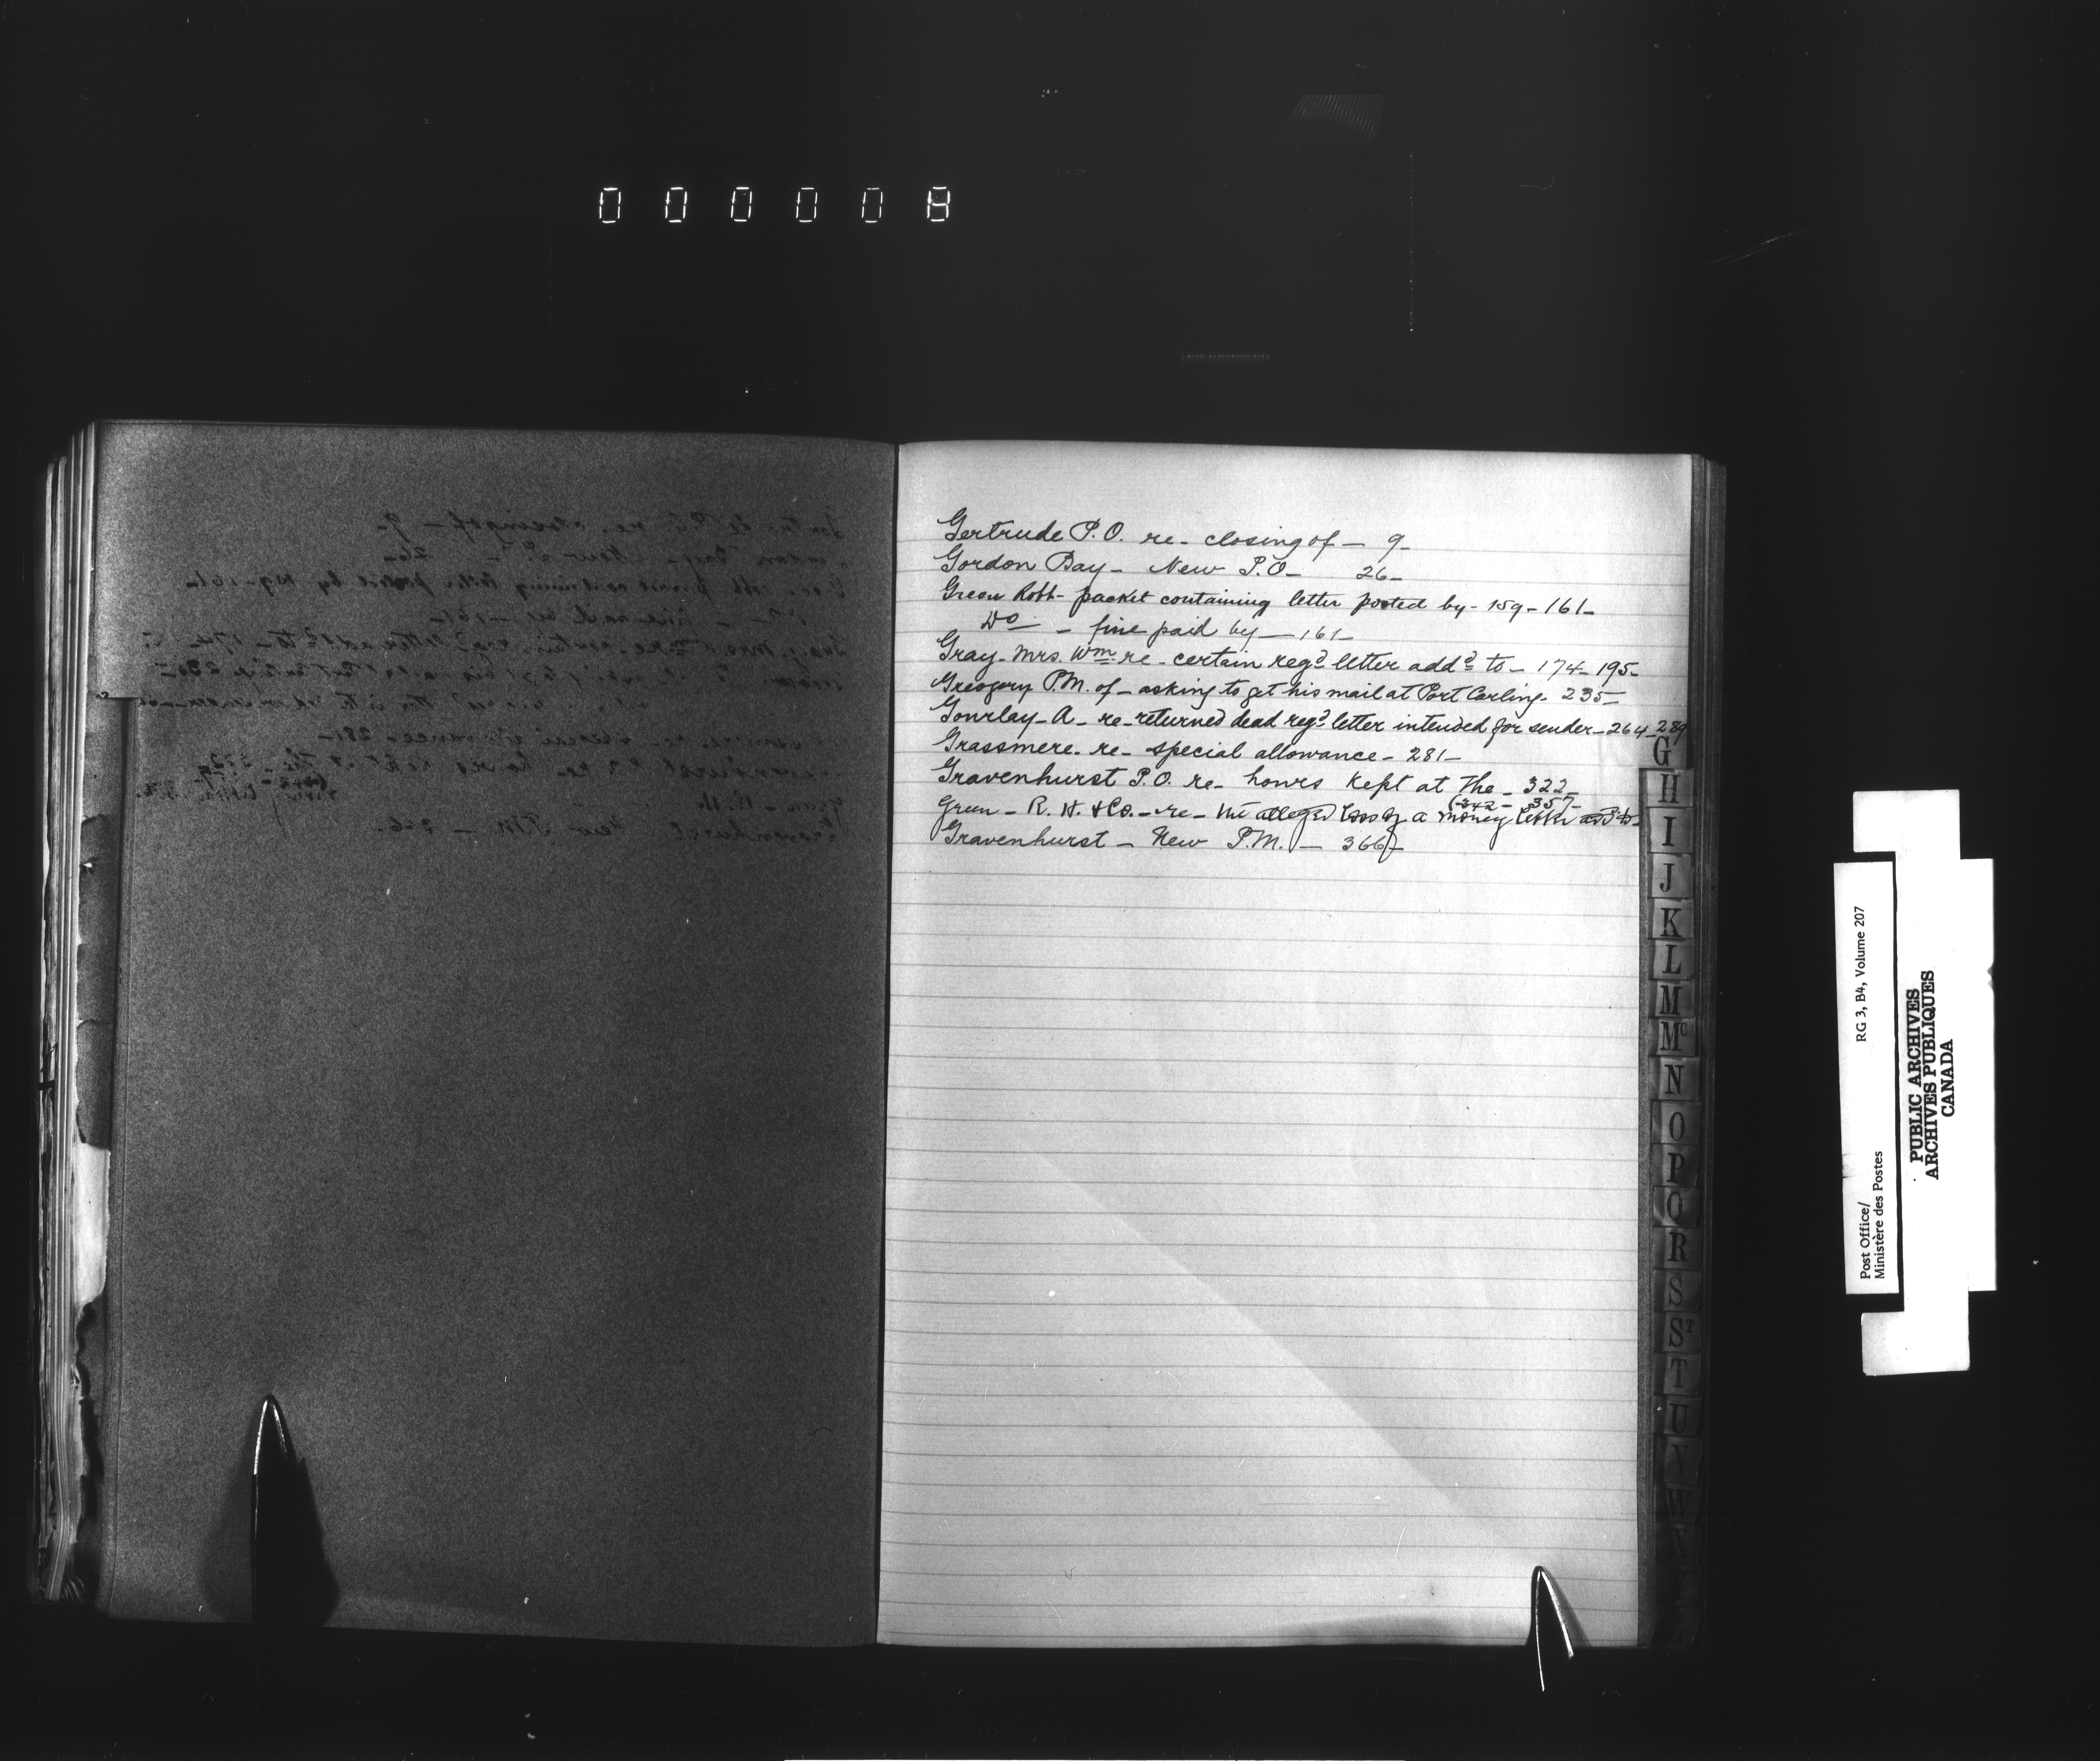 Gertrude P.O. re- closing of - 9-
Gordon Bay - New P.O - 26-
Green Robt - packet containing letter posted by - 159 - 161 -
Do - fine paid by - 161 -
Gray - Mrs. Wm. re - certain regd letter addd to - 174 - 195 -
Gregory P.M. of - asking to get his mail at Port Carling - 235 -
Gourlay - A - re - returned dead regd letter intended for sender - 264 - 289
Grassmere - re - special allowance - 281 -
Gravenhurst P.O. re - hours kept at the - 322 -
(342 - 357 -
Green - R. H. & Co. - re - the alleged loss of a money letter add to -
Gravenhurst - New P.M. - 366 -
G
H
I
J
K
L
M
Mc
N
O
P
Q
R
S
ST
T
U
V
W
RG 3, B4, Volume 207
Post Office/
Ministère des Postes
PUBLIC ARCHIVES
ARCHIVES PUBLIQUES
CANADA